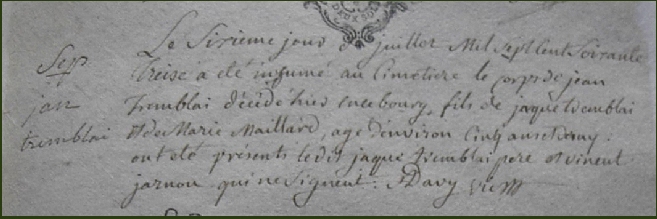 DEUX SOLS
Le Sixieme jour de juillet Mil Sept Cent Soixante
treise a eté inhumé au Cimetiere le corps de jean
tremblai décédé hier en ce bourg, fils de jaque tremblai
et de Marie Maillard, agé d'environ Cinq ans et demy.
ont eté présents ledit jaque tremblai pere et vincent
jarnou qui ne Signent : Davy
Sep
jan
tremblai